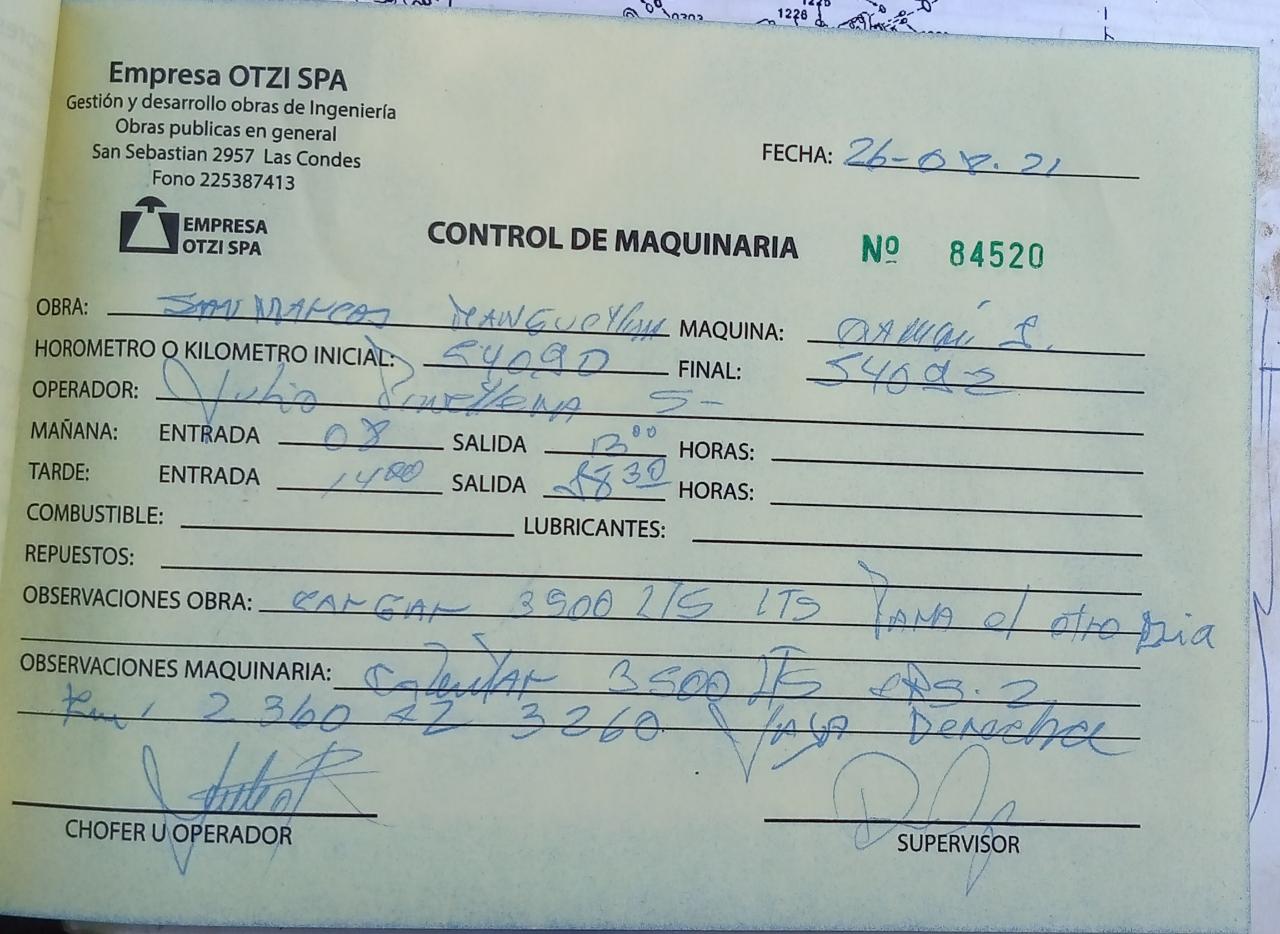 1226
Empresa OTZI SPA
Gestión y desarrollo obras de Ingeniería
Obras publicas en general
San Sebastian 2957 Las Condes
Fono 225387413
FECHA: 26-08-21
EMPRESA
OTZI SPA
CONTROL DE MAQUINARIA Nº 84520
OBRA: SAN MARCOS MANGUEYHUA MAQUINA: CAMIÓN
HOROMETRO O KILOMETRO INICIAL: 54090 FINAL:
OPERADOR: Julio S-
MAÑANA: ENTRADA 08 SALIDA 13 00 HORAS:
TARDE: ENTRADA 14 00 SALIDA 18 30 HORAS:
COMBUSTIBLE: LUBRICANTES:
REPUESTOS:
OBSERVACIONES OBRA: CARGAR 3500 LTS LTS PARA el otro Dia
OBSERVACIONES MAQUINARIA: 3500 LTS 2
Km 2 360 3260 Derecha
CHOFER U OPERADOR
SUPERVISOR